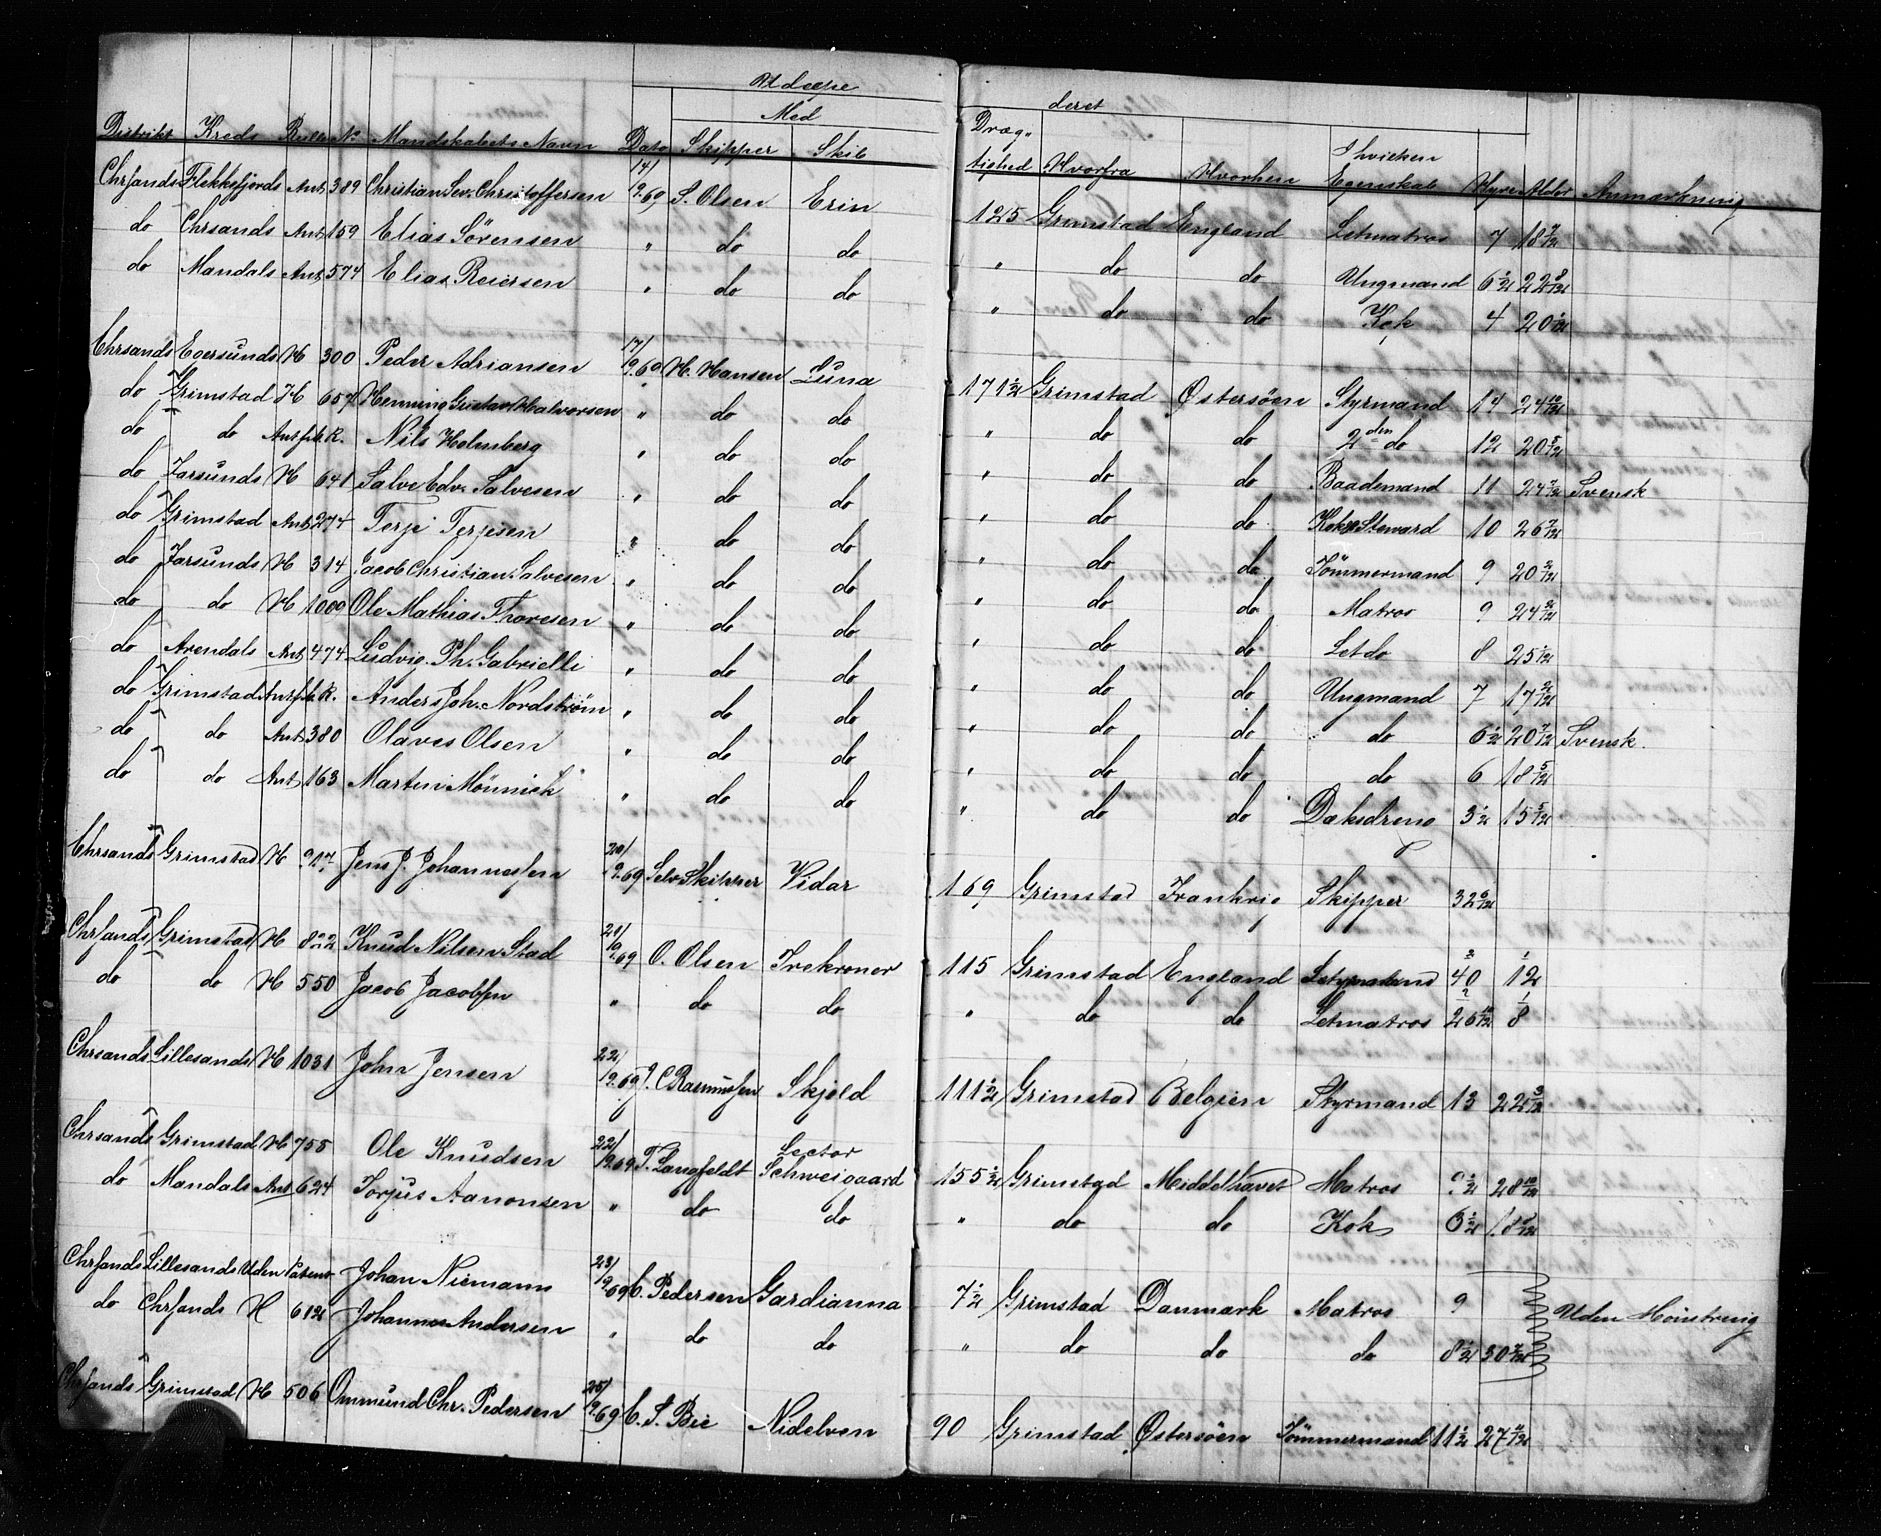 Udløpe deret
Med
Distrikt Kreds Rulle No Mandskabets Navn Dato Skipper Skib Dræg„tighed Hvorfra Hvorhen I hvilken Egenskab Hyre Alder Anmærkning
Chrsands Flekkefjords Ant 389 Christian Sev. Christoffersen 14/9.69 S. Olsen Erin 125 Grimstad England Letmatros 7 18 7/12
do Chrsands Ant 159 Elias Sörensen „ do do „ do do Ungmand 6½ 22 8/12
do Mandals Ant 574 Elias Reiersen „ do do „ do do Kok 4 20 1/12
Chrsands Egersunds H 300 Peder Adriansen 17/9.69 H. Hansen Luna 171½ Grimstad Østersöen Styrmand 14 24 10/12
do Grimstad H 657 Henning Gustav Halvorsen „ do do „ do do 2den do 12 20 5/12
do do Ant. R. Nils Holmberg „ do do „ do do Baadsmand 11 24 7/12 Svensk
do Farsunds H 641 Salve Edv. Salvesen „ do do „ do do Kok&Steward 10 26 7/12
do Grimstad Ant 274 Terje Terjesen „ do do „ do do Tömmermand 9 20 2/12
do Farsunds H 314 Jacob Christian Salvesen „ do do „ do do Matros 9 24 2/12
do do H 1009 Ole Mathias Thoresen „ do do „ do do Let do 8 25 1/12
do Arendals Ant 474 Ludvig Ph. Gabrielli „ do do „ do do Ungmand 7 17 2/12
do Grimstad Ant R. Anders Joh. Nordström „ do do „ do do do 6½ 20 7/12 Svensk.
do do Ant 380 Olaves Olsen „ do do „ do do do 6 18 5/12
do do Ant 163 Martin Mönnich „ do do „ do do Dæksdreng 3½ 15 5/12
Chrsands Grimstad H 917 Jens J. Johannessen 20/9.69 Selv Skipper Vidar 169 Grimstad Frankrig Skipper 32 6/12
Chrsands Grimstad H 822 Knud Nilsen Stad 21/9.69 O. Olsen Trekroner 115 Grimstad England Styrmand 40 12
do do H 550 Jacob Jacobsen „ do do „ do do Letmatros 26 10/12 8
Chrsands Lillesands H 1031 John Jensen 22/9.69 J. C Rasmussen Skjold 111½ Grimstad Belgien Styrmand 13 22 3/12
Chrsands Grimstad H 755 Ole Knudsen 22/9.69 T. Langfeldt Lector Schweigaard 155½ Grimstad Middelhavet Matros 9½ 28 10/12
do Mandals Ant 624 Torjus Aanonsen „ do do „ do do Kok 6½ 18 /12
Chrsands Lillesands Uden Patent Johan Niemann 23/9.69 C. Pedersen Gardianna 7½ Grimstad Danmark Matros 9 Uden Mönstring
do Chrsands H 612 Johannes Andersen „ do do „ do do do 8½ 30 /12
Chrsands Grimstad H 506 Ommund Chr. Pedersen 25/9.69 C. S. Bie Nidelven 90 Grimstad Østersöen Tömmermand 11½ 27 /12